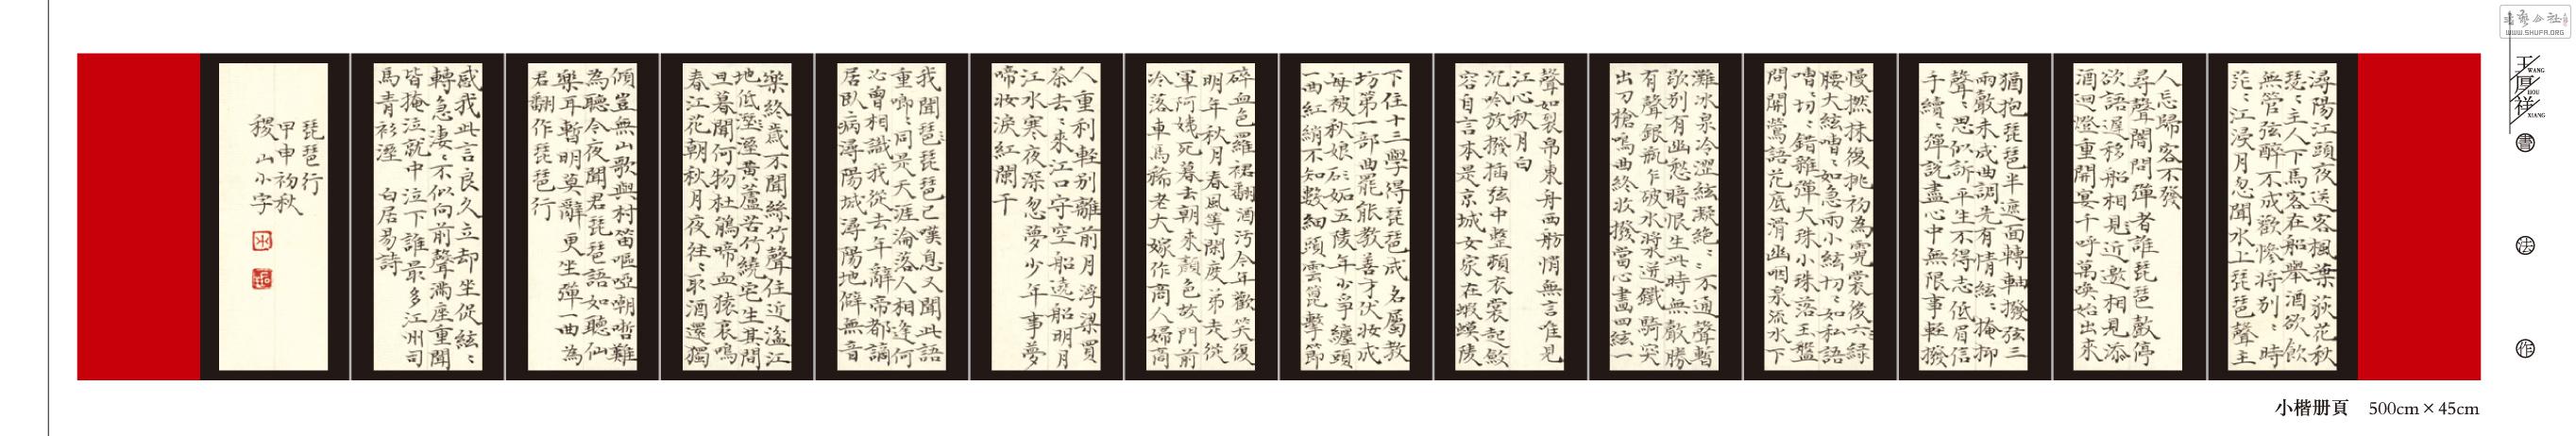 潯陽江頭夜送客楓葉荻花秋
瑟〻主人下馬客在船舉酒欲飲
無管弦醉不成歡慘將別〻時
茫〻江浸月忽聞水上琵琶聲主
人忘歸客不發
尋聲闇問彈者誰琵琶聲停
欲語遲移船相見近邀相見添
酒迴燈重開宴千呼萬喚始出來
猶抱琵琶半遮面轉軸撥弦三
兩聲未成曲調先有情絃〻掩抑
聲〻思似訴平生不得志低眉信
手續〻彈說盡心中無限事輕撥
慢撚抹復挑初為霓裳後六綠
腰大絃嘈〻如急雨小絃切〻如私語
嘈〻切〻錯雜彈大珠小珠落玉盤
間關鶯語花底滑幽咽泉流水下
灘冰泉冷澀絃凝絕〻不通聲暫
歇別有幽愁暗恨生此時無聲勝
有聲銀瓶乍破水漿迸鐵騎突
出刀槍鳴曲終收撥當心畫四絃一
聲如裂帛東舟西舫悄無言唯見
江心秋月白
沉吟放撥插弦中整頓衣裳起斂
容自言本是京城女家在蝦蟆陵
下住十三學得琵琶成名屬教
坊第一部曲罷能教善才伏妝成
每被秋娘妒五陵年少爭纏頭
一曲紅綃不知數鈿頭雲篦擊節
碎血色羅裙翻酒污今年歡笑復
明年秋月春風等閑度弟走從
軍阿姨死暮去朝來顏色故門前
冷落車馬稀老大嫁作商人婦商
人重利輕別離前月浮梁買
茶去〻來江口守空船遶船明月
江水寒夜深忽夢少年事夢
啼妝淚紅闌干
我聞琵琶琵琶已嘆息又聞此語
重唧〻同是天涯淪落人相逢何
必曾相識我從去年辭帝都謫
居臥病潯陽城潯陽地僻無音
樂終歲不聞絲竹聲住近湓江
地低溼溼黃蘆苦竹繞宅生其間
旦暮聞何物杜鵑啼血猿哀鳴
春江花朝秋月夜往〻取酒還獨
傾豈無山歌與村笛嘔啞嘲哳難
為聽今夜聞君琵琶語如聽仙
樂耳暫明莫辭更坐彈一曲為
君翻作琵琶行
感我此言良久立却坐促絃〻
轉急淒〻不似向前聲滿座重聞
皆掩泣就中泣下誰最多江州司
馬青衫溼 白居易詩
琵琶行
甲申初秋
稷山小字
王厚祥
WANG
HOU
XIANG
書法作
小楷册頁 500cm×45cm
WWW.SHUFA.ORG